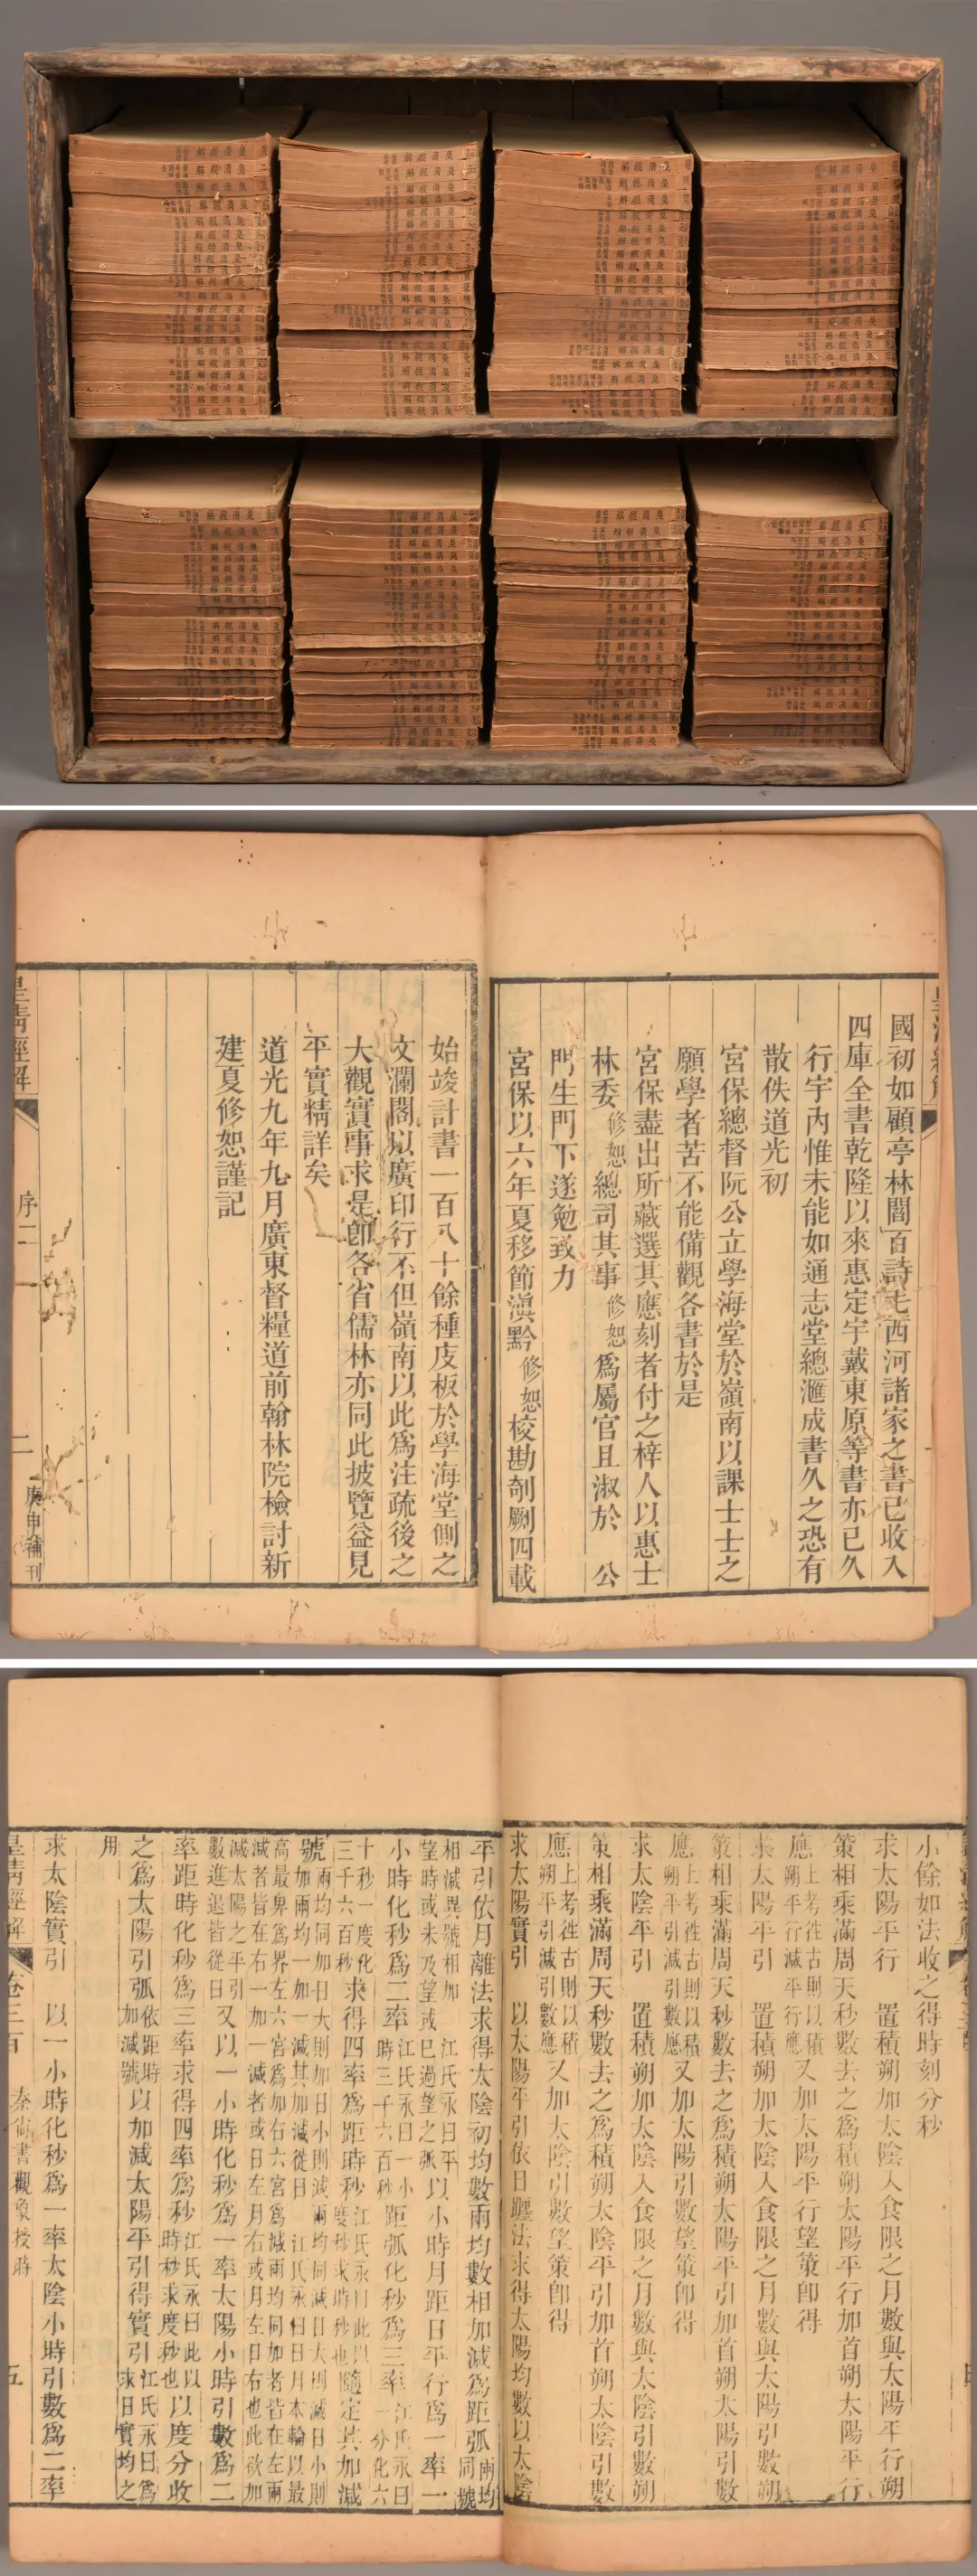 皇清經解
國初如顧亭林閻百詩毛西河諸家之書已收入
四庫全書乾隆以來惠定宇戴東原等書亦已久
行宇內惟未能如通志堂總滙成書久之恐有
散佚道光初
宮保總督阮公立學海堂於嶺南以課士士之
願學者苦不能備觀各書於是
宮保盡出所藏選其應刻者付之梓人以惠士
林委修恕總司其事修恕爲屬官且淑於 公
門生門下遂勉致力
宮保以六年夏移節滇黔修恕校勘剞劂四載
始竣計書一百八十餘種庋板於學海堂側之
文瀾閣以廣印行不但嶺南以此爲注疏後之
大觀實事求是卽各省儒林亦同此披覽益見
平實精詳矣
道光九年九月廣東督糧道前翰林院檢討新
建夏修恕謹記
皇清經解
序二
二
庚申補刊
小餘如法收之得時刻分秒
求太陽平行 置積朔加太陰入食限之月數與太陽平行朔
策相乘滿周天秒數去之爲積朔太陽平行加首朔太陽平行
應上考往古則以積朔平行減平行應又加太陽平行望策卽得
求太陽平引 置積朔加太陰入食限之月數與太陽引數朔
策相乘滿周天秒數去之爲積朔太陽平引加首朔太陽引數
應上考往古則以積朔平引減引數應又加太陽引數望策卽得
求太陰平引 置積朔加太陰入食限之月數與太陰引數朔
策相乘滿周天秒數去之爲積朔太陰平引加首朔太陰引數
應上考往古則以積朔平引減引數應又加太陰引數望策卽得
求太陽實引 以太陽平引依日躔法求得太陽均數以太陰
平引依月離法求得太陰初均數兩均數相加減爲距弧兩均同號
相減異號相加 江氏永曰平望時或未及望或已過望之弧以小時月距日平行爲一率一
小時化秒爲二率江氏永曰一小時三千六百秒距弧化秒爲三率江氏永曰一分化六
十秒一度化三千六百秒求得四率爲距時秒江氏永曰此以度秒求時秒也隨定其加減
號兩均同加日大則加日小則減兩均同減日大則減日小則加兩均一加一減其加減從日 江氏永曰日月本輪以最
高最卑爲界左六宮爲加右六宮爲減兩均同加者皆在左兩減者皆在右一加一減者或日左月右或月左日右也此欲加
減太陽之平引數進退皆從日又以一小時化秒爲一率太陽小時引數爲二
率距時化秒爲三率求得四率爲秒江氏永曰此以時秒求度秒也以度分收
之爲太陽引弧依距時加減號以加減太陽平引得實引江氏永曰爲求日實均之
用
求太陰實引 以一小時化秒爲一率太陰小時引數爲二率
皇清經解
卷三百
秦尚書觀象授時
五